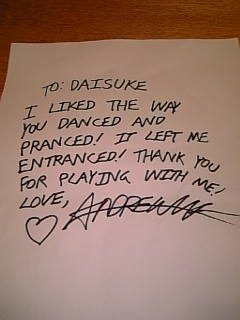 TO: DAISUKE
I LIKED THE WAY
YOU DANCED AND
PRANCED! IT LEFT ME
ENTRANCED! THANK YOU
FOR PLAYING WITH ME!
LOVE,